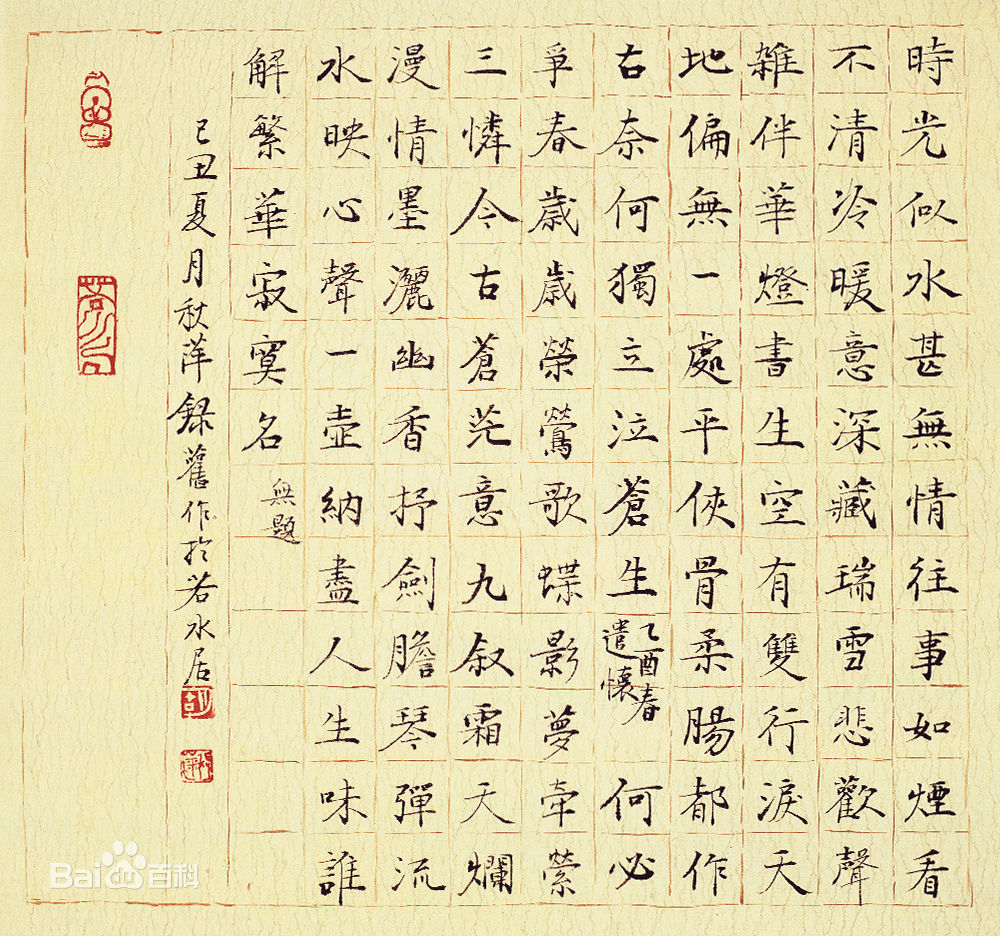 時光似水甚無情往事如煙看
不清冷暖意深藏瑞雪悲歡聲
雜伴華燈書生空有雙行淚天
地偏無一處平俠骨柔腸都作
古奈何獨立泣蒼生
乙酉春
遣懷
何必
爭春歲歲榮鶯歌蝶影夢牽縈
三憐今古蒼茫意九叙霜天爛
漫情墨灑幽香抒劍膽琴彈流
水映心聲一壺納盡人生味誰
解繁華寂寞名
無題
己丑夏月秋萍録舊作於若水居
Bai百科